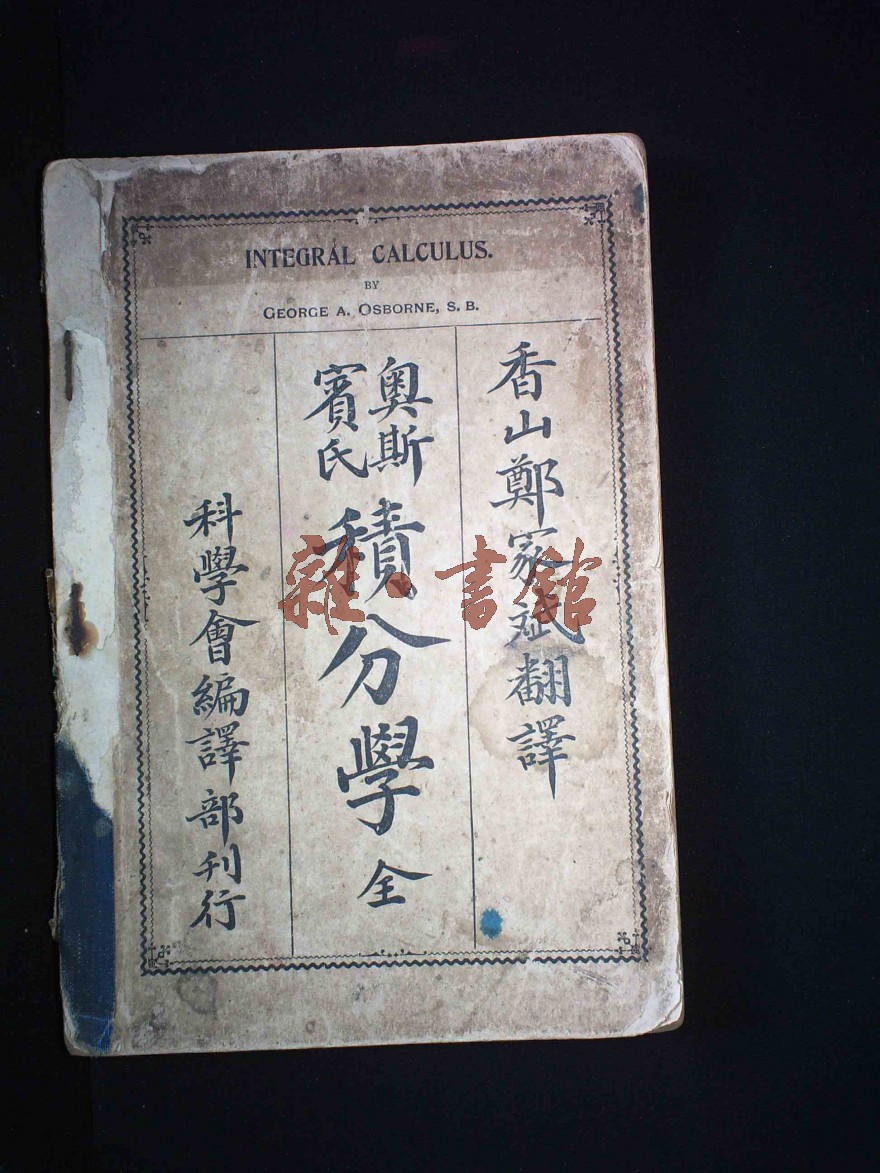 INTEGRAL CALCULUS.
BY
GEORGE A. OSBORNE, S. B.
香山鄭家斌翻譯
奧斯賓氏
積分學全
科學會編譯部刊行
雜·書館